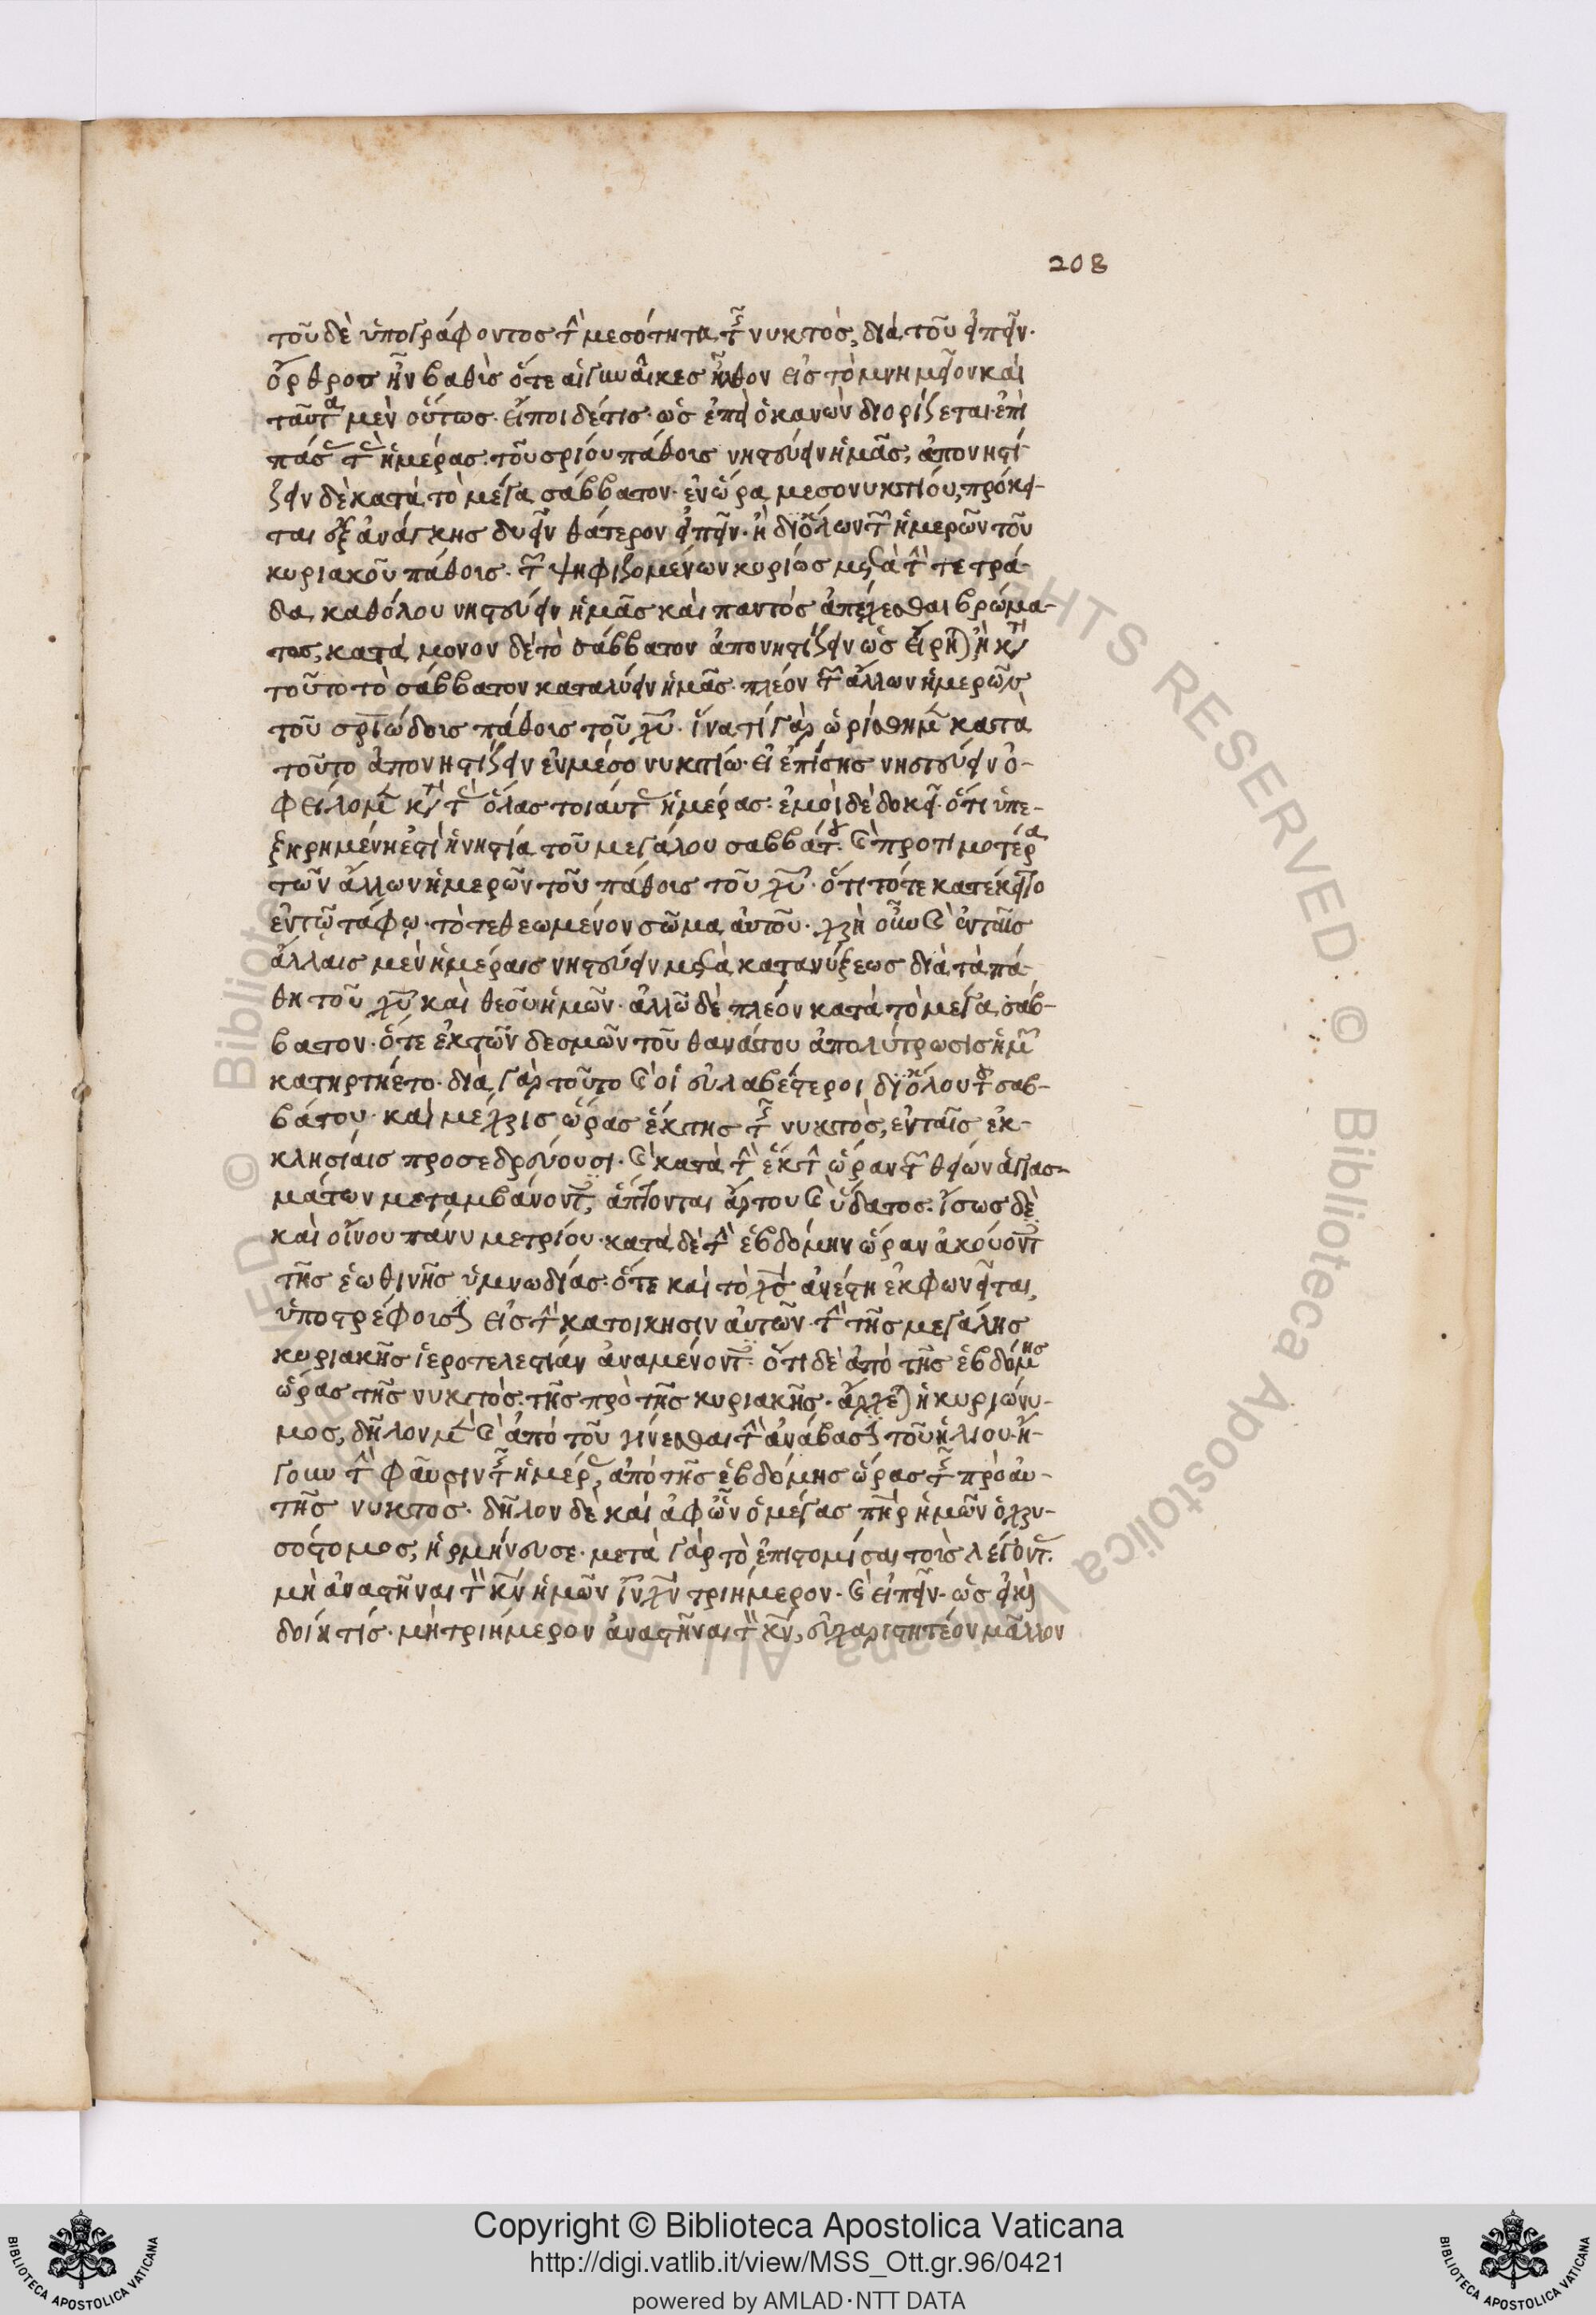 208
τοῦ δὲ ὑπογράφοντος τὴν μεσότητα τῆς νυκτὸς, διὰ τοῦ εἰπεῖν·
ὄρθρος ἦν βαθὶς ὅτε αἱ γυναῖκες ἦλθον εἰς τὸ μνημεῖον καὶ
ταῦτα μὲν οὕτως· εἴποι δέ τις· ὡς ἐπεὶ ὁ κανὼν διορίζεται· ἐπὶ
πάσας τὰς ἡμέρας τοῦ σρίου πάθους νηστεύειν ἡμᾶς, ἀπονηστί-
ζειν δὲ κατὰ τὸ μέγα σάββατον· ἐν ὥρα μεσονυκτίου, πρόκει-
ται ἐξ ἀνάγκης δυεῖν θάτερον εἰπεῖν· ἢ δι' ὅλων τῶν ἡμερῶν τοῦ
κυριακοῦ πάθους· τῶν ψηφιζομένων κυρίως μετὰ τὴν τετρά-
δα, καθόλου νηστεύειν ἡμᾶς καὶ παντὸς ἀπέχεσθαι βρώμα-
τος, κατὰ μόνον δὲ τὸ σάββατον ἀπονηστίζειν ὡς εἴρηται ἢ κατὰ
τοῦτο τὸ σάββατον καταλύειν ἡμᾶς· πλέον τῶν ἄλλων ἡμερῶν
τοῦ σριώδους πάθους τοῦ χυ· ἵνα τί γὰρ ὡρίσθημεν κατὰ
τοῦτο ἀπονηστίζειν ἐν μέσο νυκτίω· εἰ ἐπίσης νηστεύειν ὀ-
φείλομεν κατὰ τὰς ὅλας τοιαύτας ἡμέρας· ἐμοὶ δὲ δοκεῖ· ὅτι ὑπε-
ξηρημένη ἐστὶ ἡ νηστία τοῦ μεγάλου σαββάτου· καὶ προτιμοτέρα
τῶν ἄλλων ἡμερῶν τοῦ πάθους τοῦ χυ· ὅτι τότε κατέκειτο
ἐν τῷ τάφῳ· τὸ τεθεωμένον σῶμα αὐτοῦ· χρὴ οὖν καὶ ἐν ταῖς
ἄλλαις μὲν ἡμέραις νηστεύειν μετὰ κατανύξεως διὰ τὰ πά-
θη τοῦ χυ καὶ θεοῦ ἡμῶν· ἀλλὰ δὲ πλέον κατὰ τὸ μέγα σάβ-
βατον· ὅτε ἐκ τῶν δεσμῶν τοῦ θανάτου ἀπολύτρωσις ἡμῶν
κατηρτήετο· διὰ γὰρ τοῦτο καὶ οἱ εὐλαβέστεροι δι' ὅλου τοῦ σαβ-
βάτου· καὶ μέχρις ὥρας ἕκτης τῆς νυκτὸς, ἐν ταῖς ἐκ-
κλησίαις προσεδρεύουσι· καὶ κατὰ τὴν ἕκτην ὥραν τῶν θείων ἁγιασ-
μάτων μεταμβάνοντες, ἅπτονται ἄρτου καὶ ὕδατος· ἴσως δὲ
καὶ οἴνου πάνυ μετρίου· κατὰ δὲ τὴν ἑβδόμην ὥραν ἀκούοντες
τῆς ἑωθινῆς ὑμνωδίας· ὅτε καὶ τὸ χς ἀνέστη ἐκφωνεῖται,
ὑποστρέφουσιν εἰς τὴν κατοίκησιν αὐτῶν· τὴν τῆς μεγάλης
κυριακῆς ἱεροτελεστίαν ἀναμένοντες· ὅτι δὲ ἀπὸ τῆς ἑβδόμης
ὥρας τῆς νυκτὸς· τῆς πρὸ τῆς κυριακῆς· ἄρχεται ἡ κυριώνυ-
μος, δῆλον μὲν καὶ ἀπὸ τοῦ γίνεσθαι τὴν ἀνάβασιν τοῦ ἡλίου· ἤ-
γουν τὴν φαῦσιν τῆς ἡμέρας, ἀπὸ τῆς ἑβδόμης ὥρας τῆς πρὸ αὐ-
τῆς νυκτὸς· δῆλον δὲ καὶ ἀφ' ὧν ὁ μέγας πηρ ἡμῶν ὁ χρυ-
σόστομος, ἡρμήνευσε· μετὰ γὰρ τὸ ἐπιστομίσαι τοὺς λέγοντας
μὴ ἀναστῆναι τὸν κν ἡμῶν ιν χν τριήμερον· καὶ εἰπεῖν· ὡς εἰ καὶ
δοίη τίς· μὴ τριήμερον ἀναστῆναι τὸν κν, εὐχαριστητέον μᾶλλον
Copyright © Biblioteca Apostolica Vaticana
http://digi.vatlib.it/view/MSS_Ott.gr.96/0421
powered by AMLAD·NTT DATA